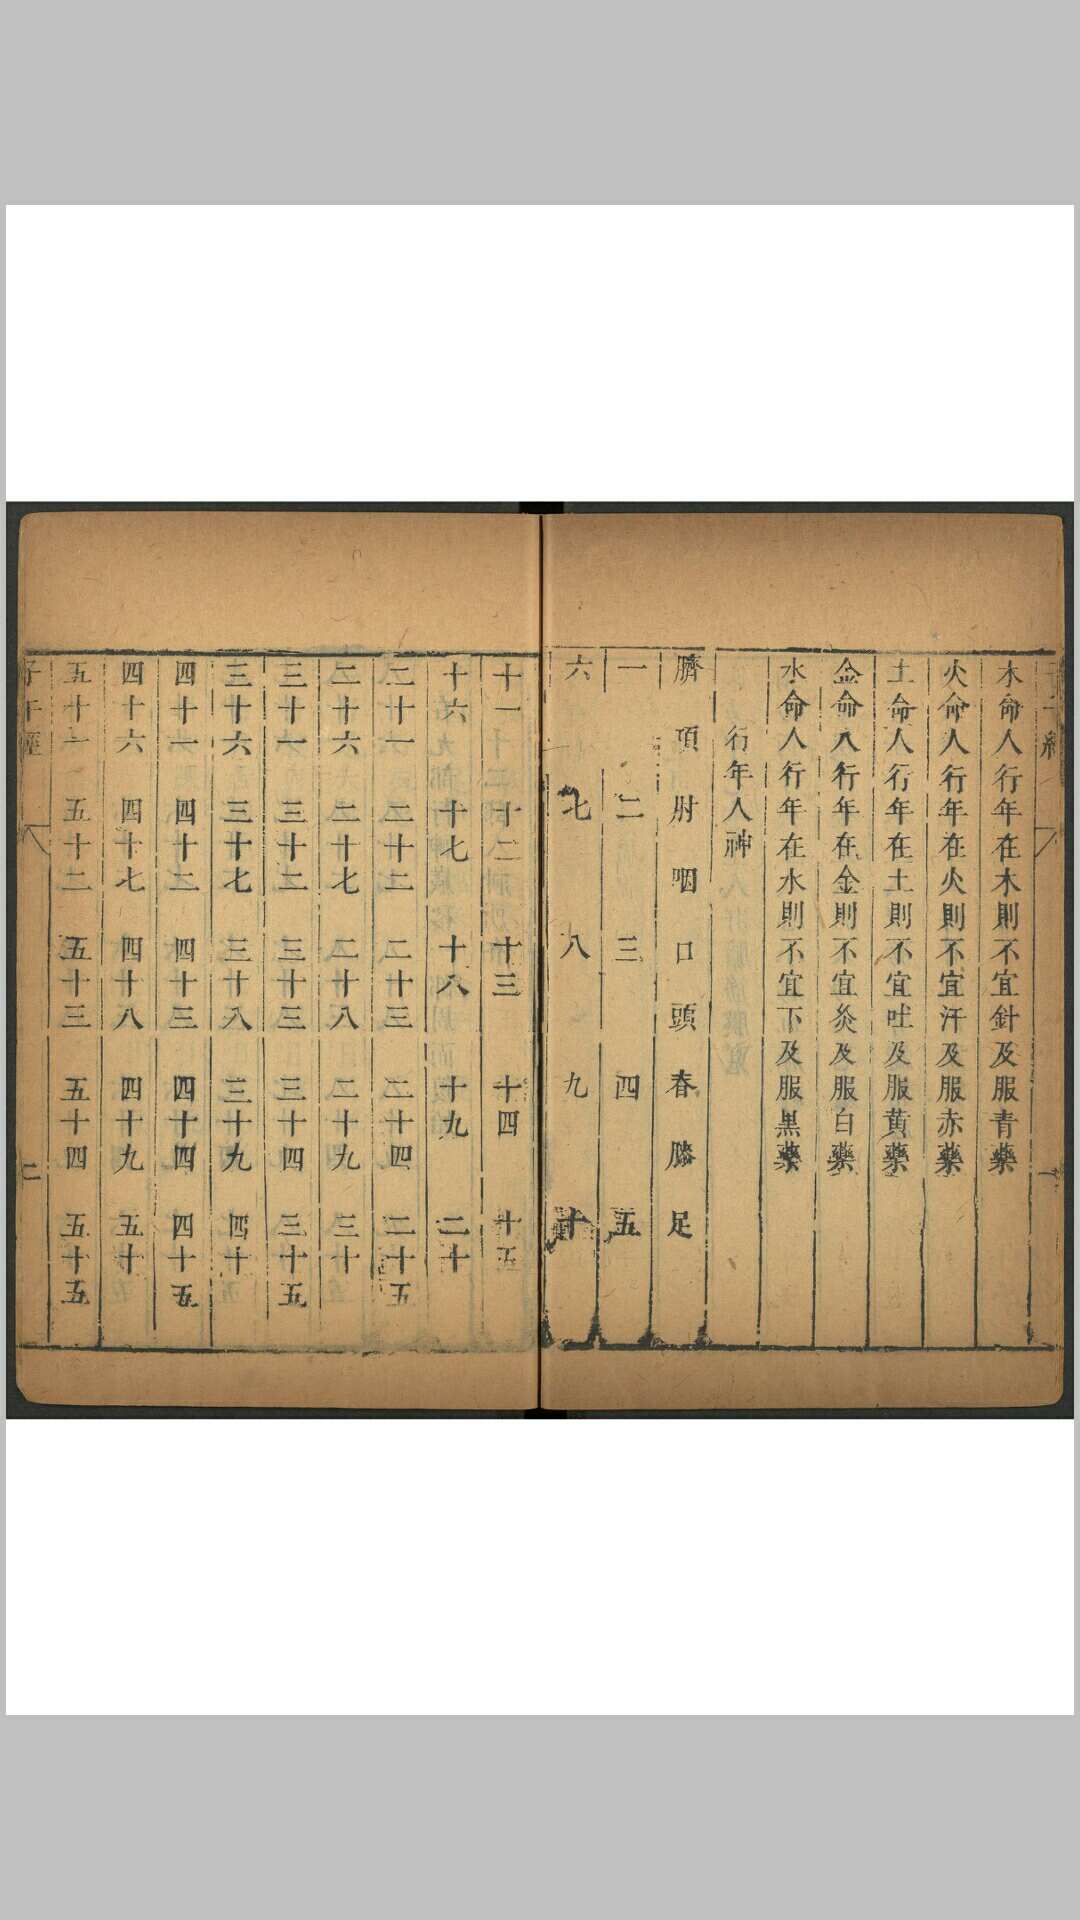 木命人行年在木則不宜針及服青藥
火命人行年在火則不宜汗及服赤藥
土命人行年在土則不宜吐及服黃藥
金命人行年在金則不宜灸及服白藥
水命人行年在水則不宜下及服黑藥
行年人神
臍 項 肘 咽 口 頭 春 膝 足
一 二 三 四 五
六 七 八 九 十
十一 十二 十三 十四 十五
十六 十七 十八 十九 二十
二十一 二十二 二十三 二十四 二十五
二十六 二十七 二十八 二十九 三十
三十一 三十二 三十三 三十四 三十五
三十六 三十七 三十八 三十九 四十
四十一 四十二 四十三 四十四 四十五
四十六 四十七 四十八 四十九 五十
五十一 五十二 五十三 五十四 五十五
子午經 二